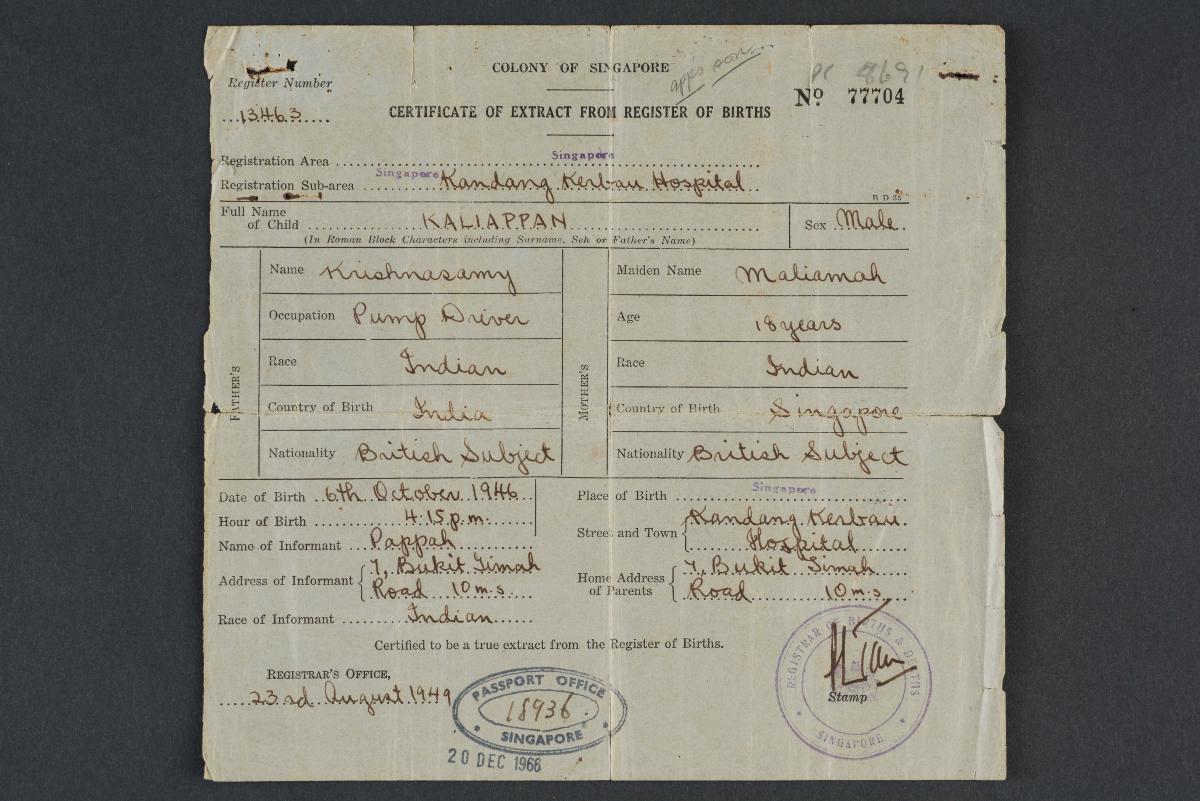 COLONY OF SINGAPORE
Register Number
13463
Nº 77704
CERTIFICATE OF EXTRACT FROM REGISTER OF BIRTHS
Registration Area Singapore
Registration Sub-area Singapore Kandang Kerbau Hospital
B D 35
Full Name of Child KALIAPPAN
Sex Male
(In Roman Block Characters including Surname, Seh or Father's Name)
FATHER'S
Name Krishnasamy
Occupation Pump Driver
Race Indian
Country of Birth India
Nationality British Subject
MOTHER'S
Maiden Name Maliamah
Age 18 years
Race Indian
Country of Birth Singapore
Nationality British Subject
Date of Birth 6th October 1946
Hour of Birth 4.15 p.m.
Name of Informant Pappah
Address of Informant 7, Bukit Timah
Road 10 m.s.
Race of Informant Indian
Place of Birth Singapore
Street and Town Kandang Kerbau
Hospital
Home Address of Parents 7, Bukit Timah
Road 10 m.s.
Certified to be a true extract from the Register of Births.
REGISTRAR'S OFFICE,
23rd August 1949
PASSPORT OFFICE
18936
SINGAPORE
20 DEC 1966
REGISTRAR OF BIRTHS & DEATHS
Stamp
SINGAPORE